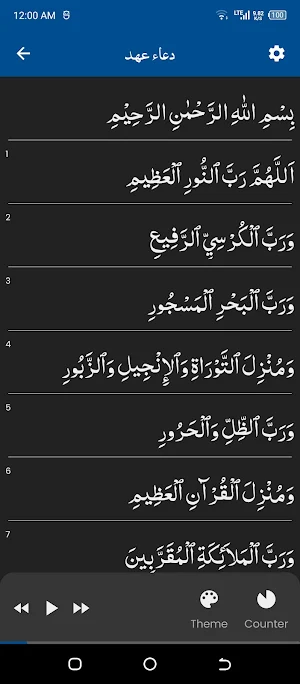 12:00 AM LTE 9.82 K/S 100
دعاء عهد
بِسْمِ اللهِ الرَّحْمٰنِ الرَّحِيْمِ
1
اَللَّهُمَّ رَبَّ ٱلنُّورِ ٱلْعَظِيمِ
2
وَرَبَّ ٱلْكُرْسِيِّ ٱلرَّفِيعِ
3
وَرَبَّ ٱلْبَحْرِ ٱلْمَسْجُورِ
4
وَمُنْزِلَ ٱلتَّوْرَاةِ وَٱلإِنْجِيلِ وَٱلزَّبُورِ
5
وَرَبَّ ٱلظِّلِّ وَٱلْحَرُورِ
6
وَمُنْزِلَ ٱلْقُرْآنِ ٱلْعَظِيمِ
7
وَرَبَّ ٱلْمَلاَئِكَةِ ٱلْمُقَرَّبِينَ
Theme Counter